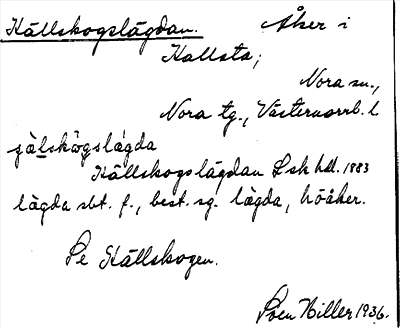 Källskogslägdan. Åker i
Kallsta;
Nora sn.,
Nora tg., Västernorrl. l
çä̀lskògslàgda
Källskogslägdan Lsk hdl. 1883
lägda sbt. f., best. sg. làgda, höåker.
Se Källskogen.
Sven Hiller 1936.